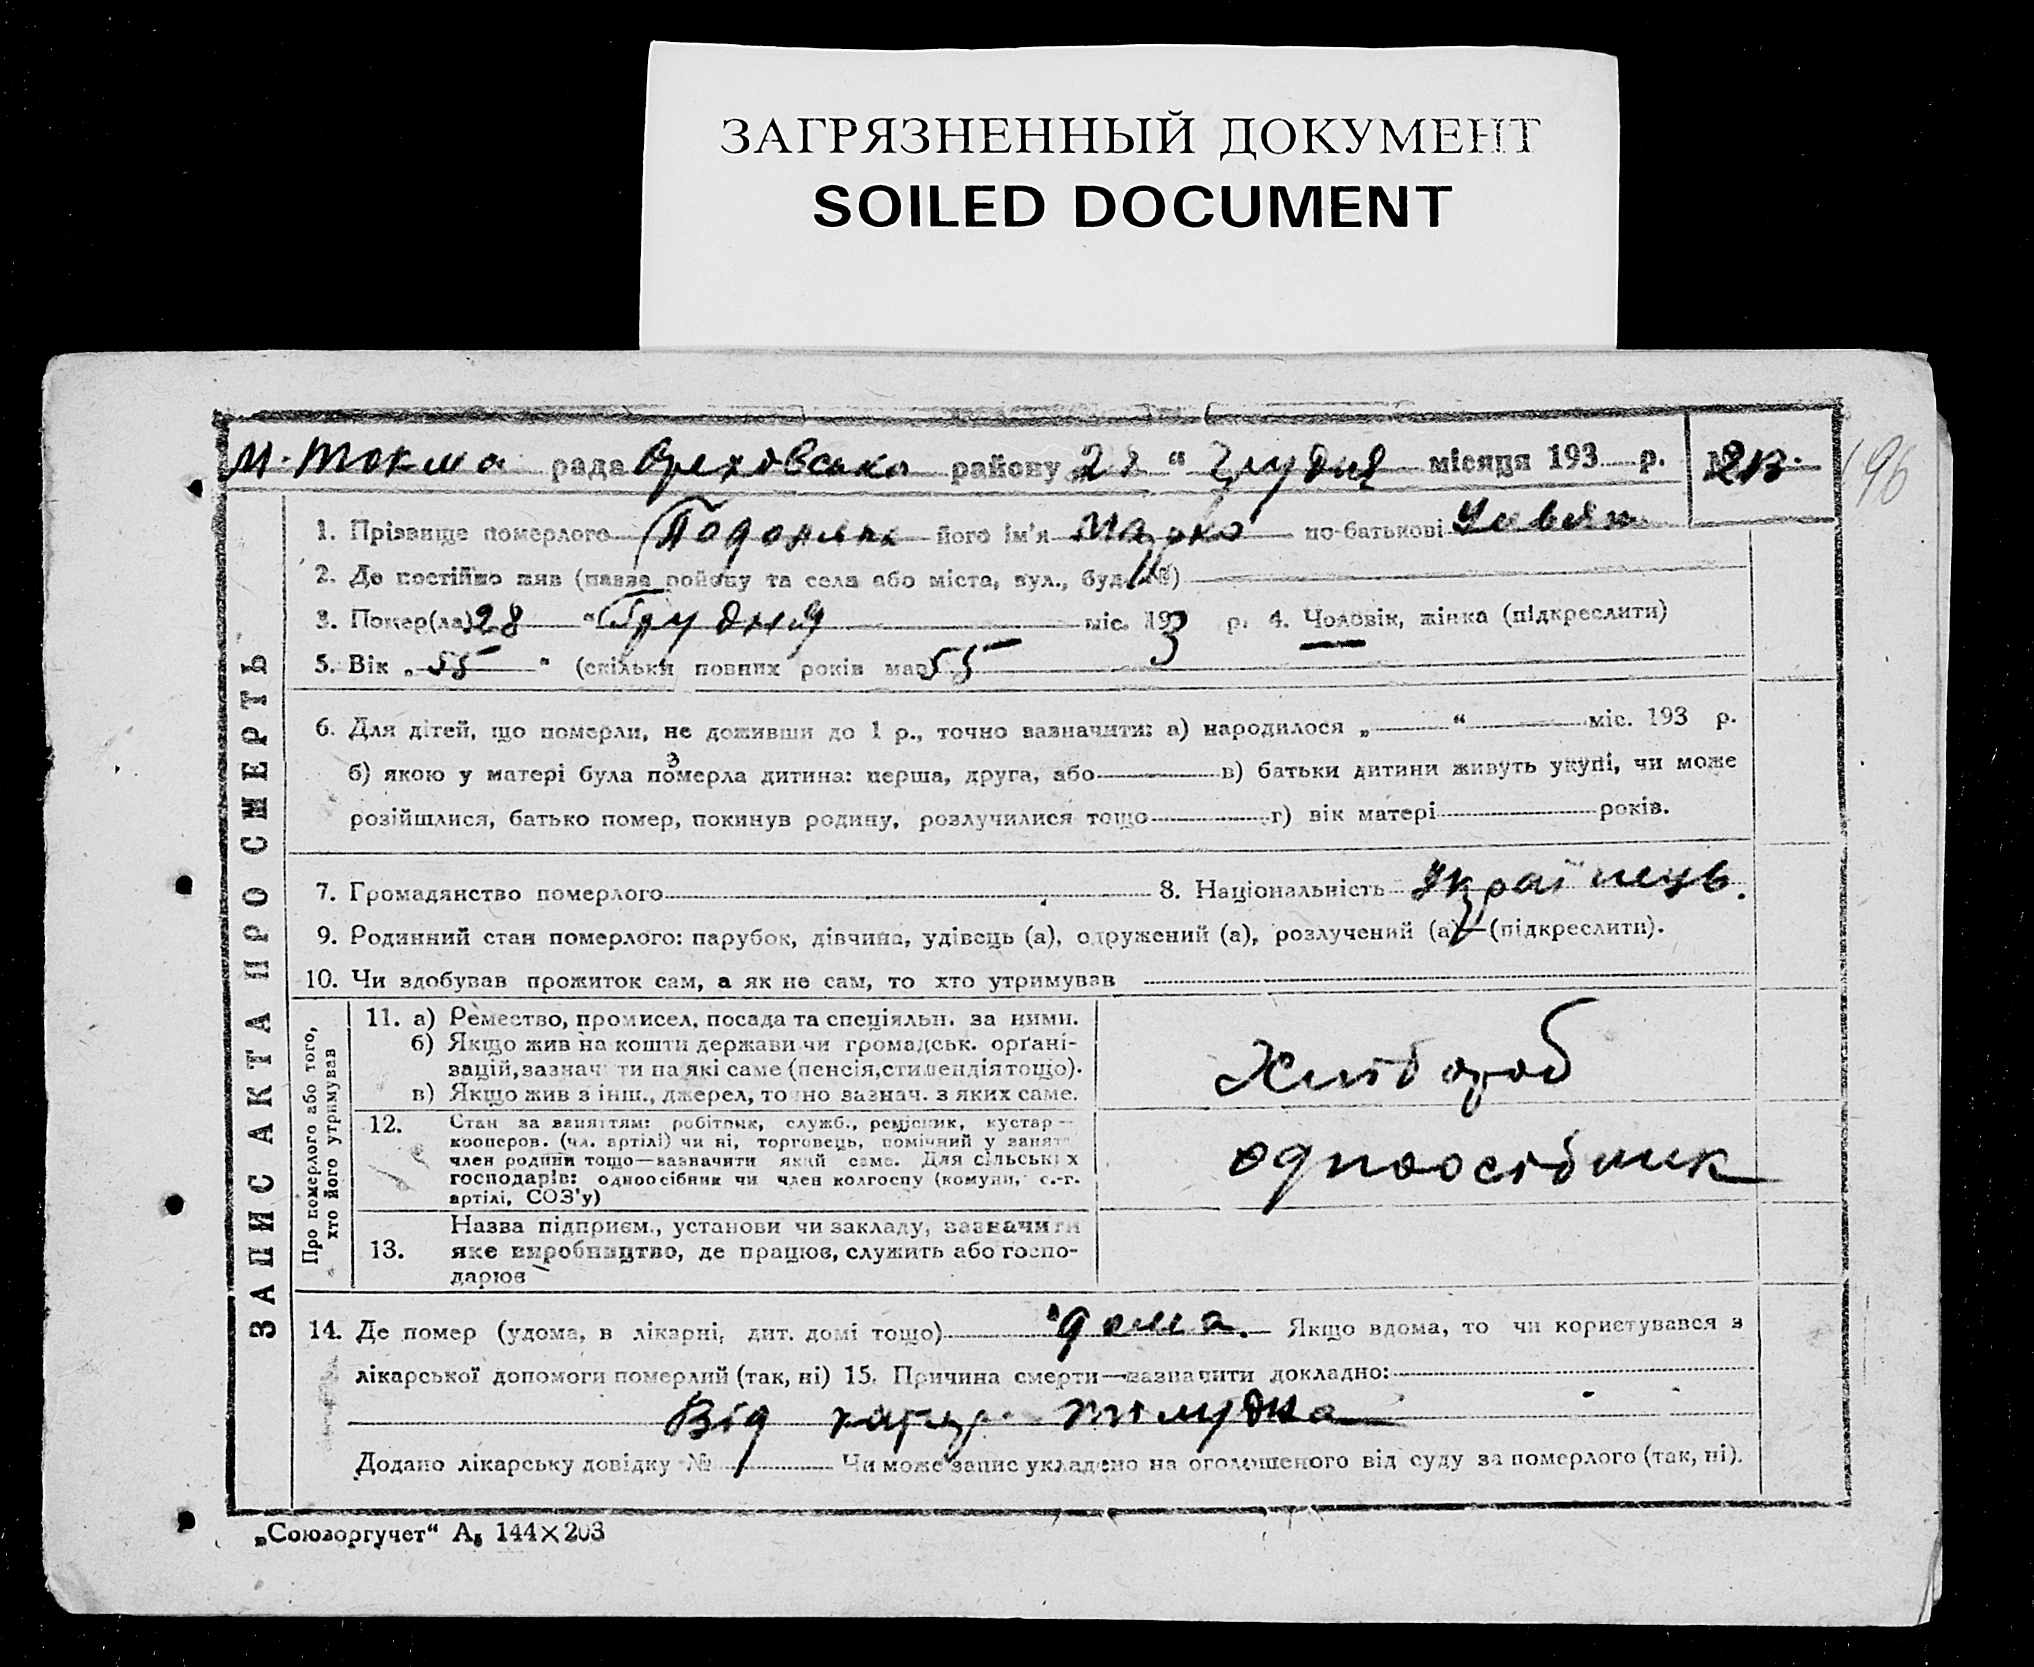 ЗАГРЯЗНЕННЫЙ ДОКУМЕНТ
SOILED DOCUMENT
М. Токма рада Ореховсько району 28 " Грудня місяця 193 р. 213
196
1. Прізвище померлого його ім'я Марко по-батькові
2. Де постійно жив (назва району та села або міста, вул., буд. №)
3. Помер(ла) 28 " Грудня міс. 193 р. 4. Чоловік, жінка (підкреслити)
5. Вік „ 55 " (скільки повних років мав 55
6. Для дітей, що померли, не доживши до 1 р., точно зазначити: а) народилося „ “ міс. 193 р.
б) якою у матері була померла дитина: перша, друга, або в) батьки дитини живуть укупі, чи може
розійшлися, батько помер, покинув родину, розлучилися тощо г) вік матері років.
7. Громадянство померлого 8. Національність Українець.
9. Родинний стан померлого: парубок, дівчина, удівець (а), одружений (а), розлучений (а)—(підкреслити).
10. Чи здобував прожиток сам, а як не сам, то хто утримував
11. а) Ремество, промисел, посада та спеціяльн. за ними.
б) Якщо жив на кошти держави чи громадськ. орґані-
зацій, зазначити на які саме (пенсія, стипендія тощо).
в) Якщо жив з інш., джерел, точно зазнач. з яких саме.
Хлібороб
12. Стан за заняттям: робітник, служб., ремісник, кустар—
кооперов. (чл. артілі) чи ні, торговець, помічний у занят.
член родини тощо—зазначити який саме. Для сільських
господарів: одноосібник чи член колгоспу (комуни, с.-г.
артілі, СОЗ'у)
одноосібник
13. Назва підприєм., установи чи закладу, зазначити
яке виробництво, де працює, служить або госпо-
дарює
14. Де помер (удома, в лікарні, дит. домі тощо) дома. Якщо вдома, то чи користувався з
лікарської допомоги померлий (так, ні) 15. Причина смерти—зазначити докладно:
Від
Додано лікарську довідку № Чи може запис укладено на оголошеного від суду за померлого (так, ні).
„Союзоргучет“ А5 144×203
ЗАПИС АКТА ПРО СМЕРТЬ
Про померлого або того,
хто його утримував